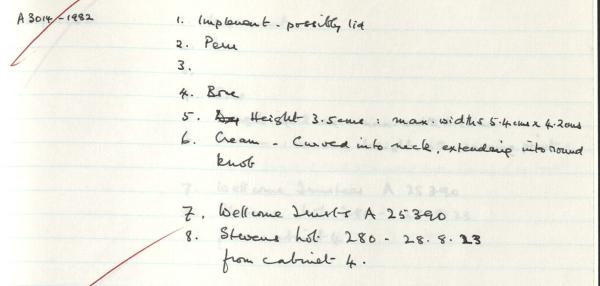 A3014-1982
1. Implement - possibly lid
2. Peru
3.
4. Bone
5. Height 3.5cms : max. widths 5.4cms x 4.2cms
6. Cream - Curved into neck, extending into round
knob
7. Wellcome Trusts A 25390
8. Stevens Lot 280 - 28.8.23
from cabinet 4.